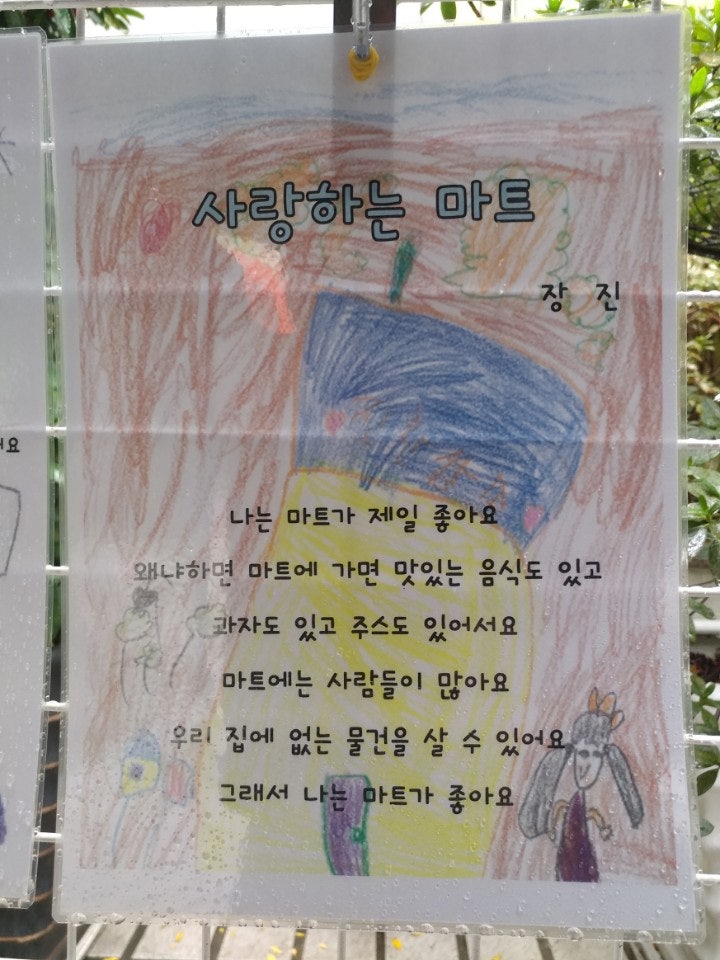 사랑하는 마트
장 진
나는 마트가 제일 좋아요
왜냐하면 마트에 가면 맛있는 음식도 있고
과자도 있고 주스도 있어서요
마트에는 사람들이 많아요
우리 집에 없는 물건을 살 수 있어요
그래서 나는 마트가 좋아요